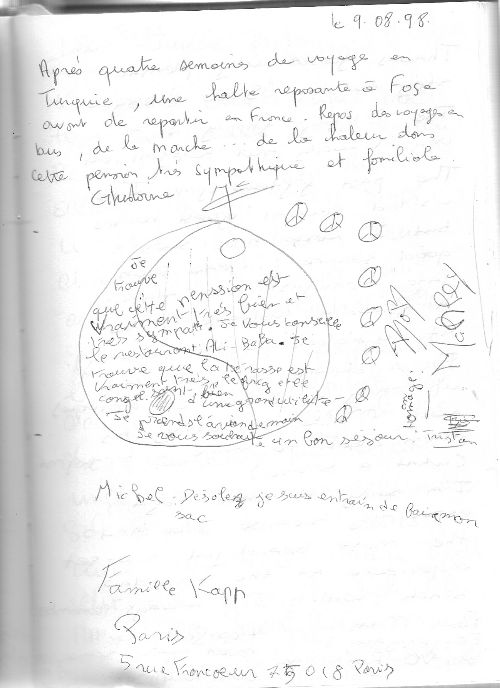 le 9.08.98.
Après quatre semaines de voyage en
Turquie, une halte reposante à Foça
avant de repartir en France. Repos des voyages en
bus, de la marche... de la chaleur dans
cette pension très sympathique et familiale.
Ghislaine
Je
trouve
que cette penssion est
vraiment très bien et
très sympatt. Je vous conseille
le restaurant Ali-Baba. Je
trouve que la terasse est
vraiment très bien
Je prends l'avion demain
Je vous souhaite un bon sessour. Tristan
homage: Bob Marley
Michel - Desolé je suis entrain de faire mon
sac
Famille Kapp
Paris
5 rue Francoeur 75018 Paris